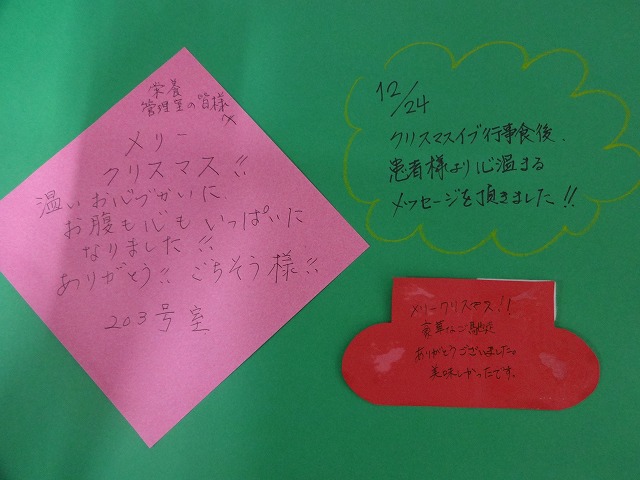 栄養
管理室の皆様
へ
メリー
クリスマス!!
温いお心づかいに
お腹も心もいっぱいに
なりました!!
ありがとう!! ごちそう様!!
203号室
12/24
クリスマスイブ行事食後、
患者様より心温まる
メッセージを頂きました!!
メリークリスマス!!
豪華なご馳走
ありがとうございました。
美味しかったです。